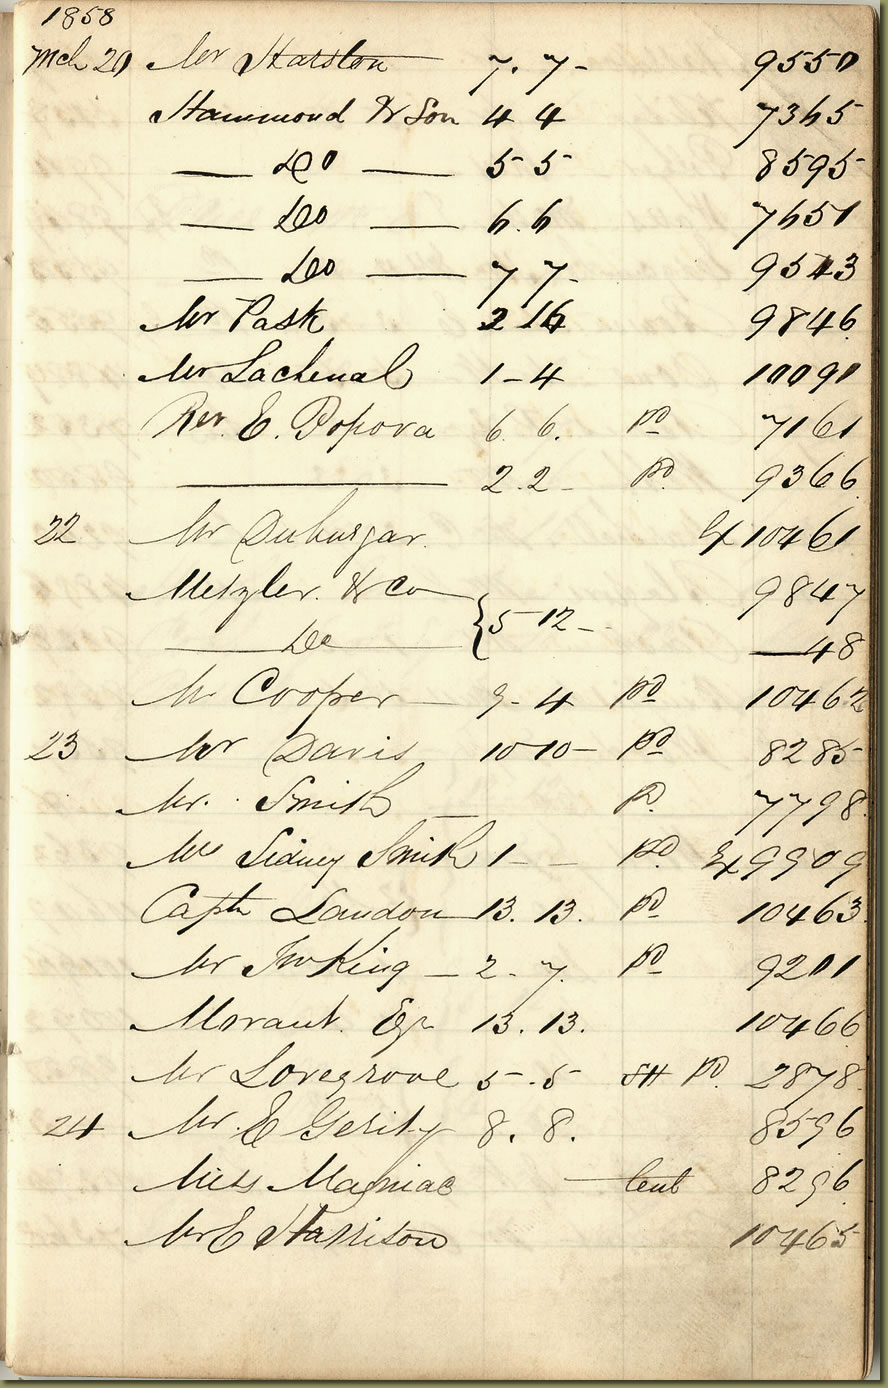 1858
Mch 20 Mr Harston 7. 7 - 9550
Hammond & Son 4 4 7365
— Do — 5 5 8595
— Do — 6. 6 7651
— Do — 7 7 - 9543
Mr Pask 2 16 9846
Mr Lachenal 1 - 4 10090
Rev. E. Popova 6. 6. pd 7161
——— 2. 2 - pd 9366
22 Mr Duhurgar. Ex 10461
Metzler. & Co 9847
— Do — { 5 12 - — 48
Mr Cooper — 9 - 4 pd 10462
23 Mr Davis 10 10 — pd 8285
Mr. Smith — P. 7798
Mrs Sidney Smith 1 - - pd. Ex 9909
Captn Landon — 13. 13. pd 10463
Mr Jno King — 2 - 7. pd 9201
Morant. Eqr 13. 13. 10466
Mr Lovegrove 5 - 5 SH pd. 2878
24 Mr. E Gerity 8. 8. 8596
Miss 8296
Mr E Harrison 10465